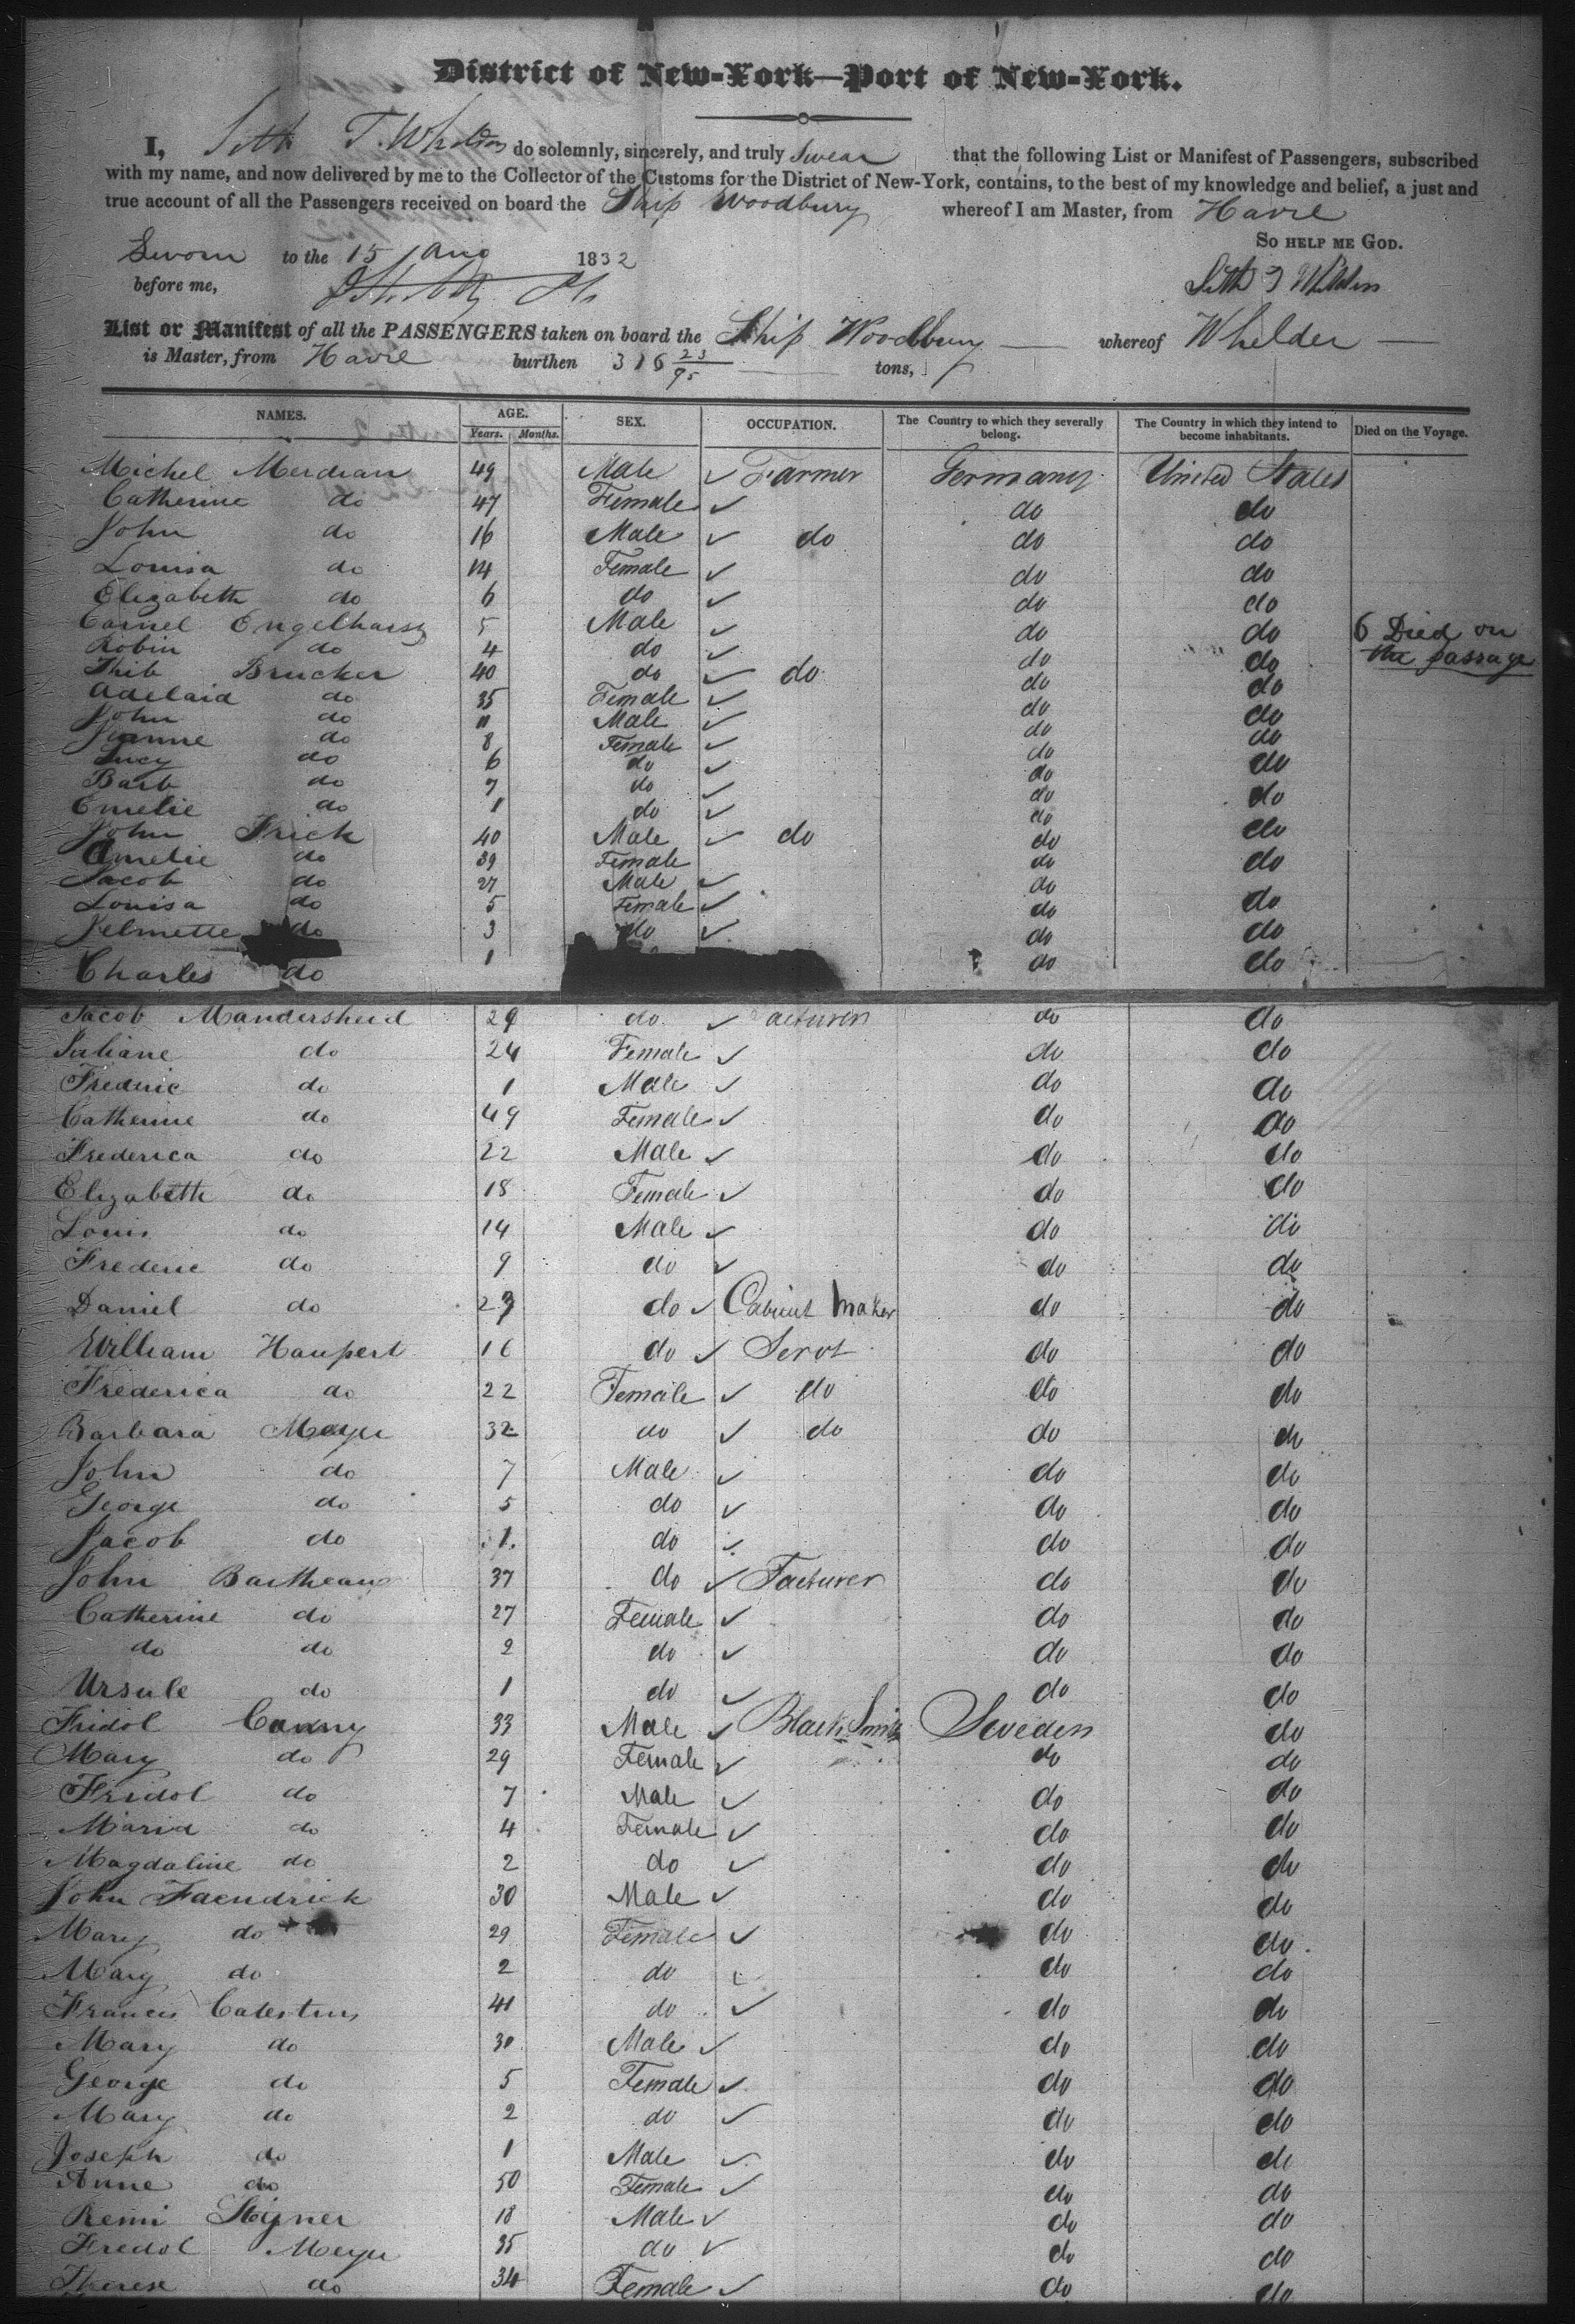 District of New-York—Port of New-York.
I, Seth T. Whelden do solemnly, sincerely, and truly Swear that the following List or Manifest of Passengers, subscribed
with my name, and now delivered by me to the Collector of the Customs for the District of New-York, contains, to the best of my knowledge and belief, a just and
true account of all the Passengers received on board the Ship Woodbury whereof I am Master, from Havre
SO HELP ME GOD.
Sworn to the 15 Aug 1832
before me,
List or Manifest of all the PASSENGERS taken on board the Ship Woodbury whereof Whelden
is Master, from Havre burthen 316 23/95 tons,
NAMES. AGE. SEX. OCCUPATION. The Country to which they severally belong. The Country in which they intend to become inhabitants. Died on the Voyage.
Years. Months.
Michel Merdian 49 Male Farmer Germany United States
Catherine do 47 Female do do
John do 16 Male do do do
Louisa do 14 Female do do
Elizabeth do 6 do do do
Carnel Engelharsz 5 Male do do 6 Died on
Robin do 4 do do do the passage
Thib Brucker 40 do do do do
Adelaid do 35 Female do do
John do 11 Male do do
Jeanne do 8 Female do do
Lucy do 6 do do do
Barb do 7 do do do
Emelie do 1 do do
John Frick 40 Male do do do
Amelie do 39 Female do do
Jacob do 27 Male do
Louisa do 5 Female do do
Jelmette do 3 do do do
Charles do 1 do do
Jacob Mandersheid 29 do acturer do do
Juliane do 24 Female do do
Frederic do 1 Male do do
Catherine do 49 Female do do
Frederica do 22 Male do do
Elizabeth do 18 Female do do
Louis do 14 Male do do
Frederic do 9 do do do
Daniel do 23 do Cabinet Maker do do
William Haupert 16 do Servt do do
Frederica do 22 Female do do do
Barbara Meyer 32 do do do do
John do 7 Male do do
George do 5 do do do
Jacob do 1 do do do
John Bartheau 37 do Facturer do do
Catherine do 27 Female do do
do do 2 do do do
Ursule do 1 do do do
Fridol Canny 33 Male Black Smith Sweden do
Mary do 29 Female do do
Fridol do 7 Male do do
Maria do 4 Female do do
Magdaline do 2 do do do
John Faendrick 30 Male do do
Mary do 29 Female do do
Mary do 2 do do do
Francis Calestins 41 do do do
Mary do 30 Male do do
George do 5 Female do do
Mary do 2 do do do
Joseph do 1 Male do do
Anne do 50 Female do do
Remi Stigner 18 Male do do
Fredol Meyer 35 do do do
Therese do 34 Female do do